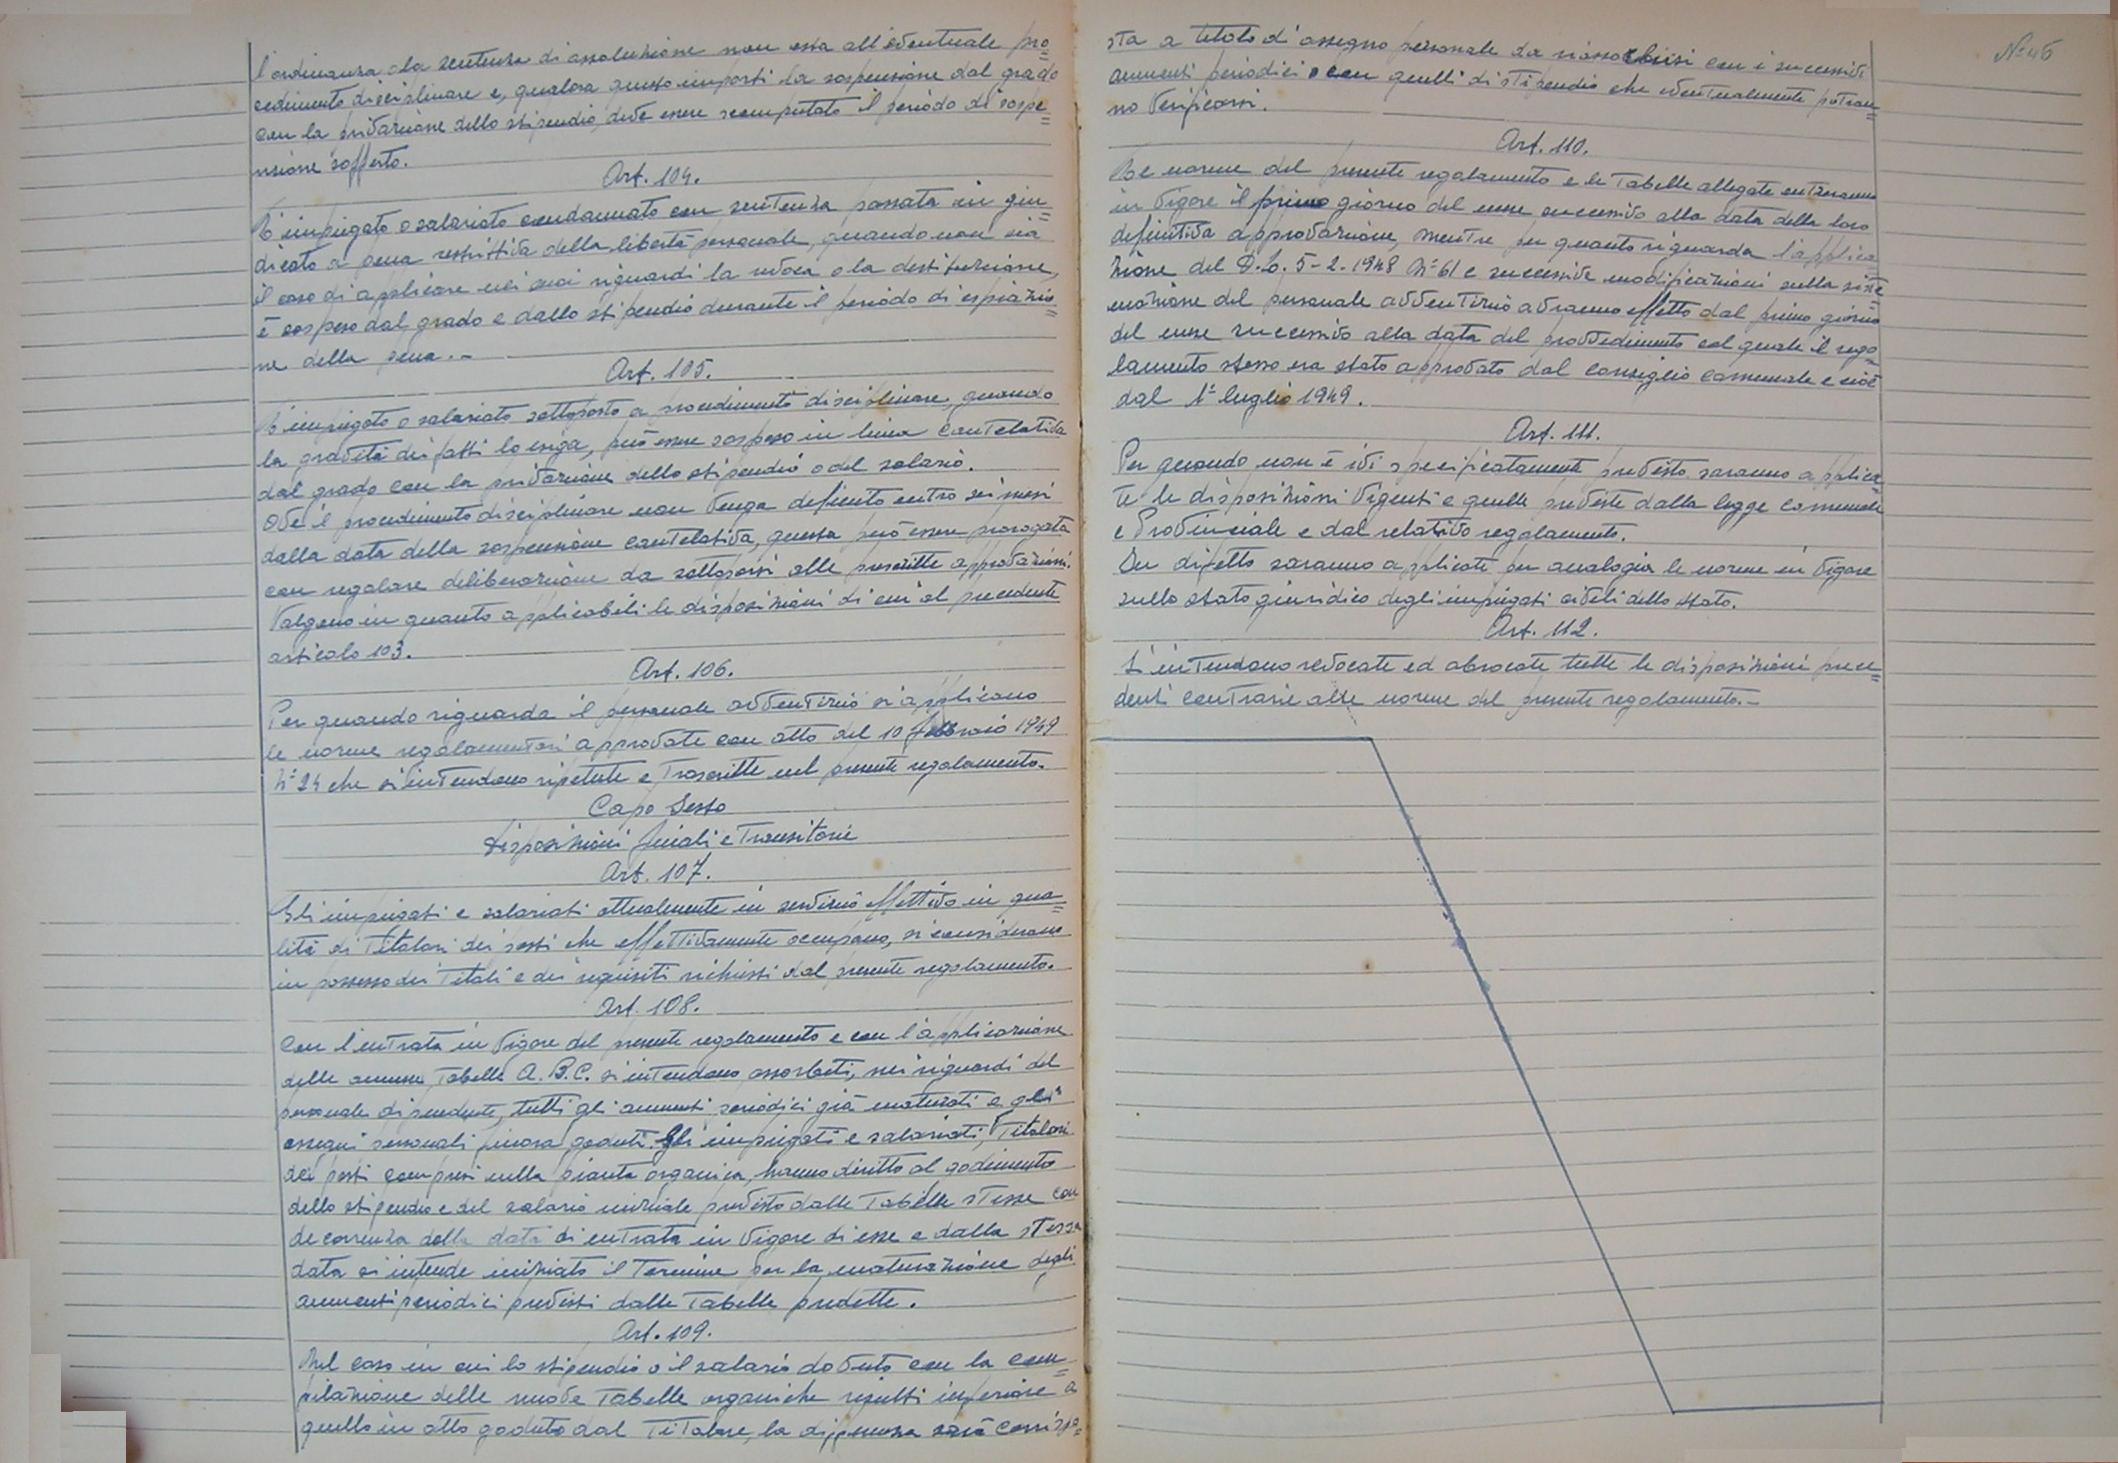 l'ordinanza o la sentenza di assoluzione non osta all'eventuale pro=
cedimento disciplinare e, qualora questo importi la sospensione dal grado
con la privazione dello stipendio, deve essere scomputato il periodo di sospe=
nsione sofferto.
Art. 104.
L'impiegato o salariato condannato con sentenza passata in giu=
dicato a pena restrittiva della libertà personale, quando non sia
il caso di applicare nei suoi riguardi la revoca o la destituzione,
è sospeso dal grado e dallo stipendio durante il periodo di espiazio=
ne della pena.-
Art. 105.
L'impiegato o salariato sottoposto a procedimento disciplinare, quando
la gravità dei fatti lo esiga, può essere sospeso in linea cautelativa
dal grado con la privazione dello stipendio o del salario.
Ove il procedimento disciplinare non venga definito entro sei mesi
dalla data della sospensione cautelativa, questa può essere prorogata
con regolare deliberazione da sottoporsi alle prescritte approvazioni.
Valgono in quanto applicabili le disposizioni di cui al precedente
articolo 103.
Art. 106.
Per quando riguarda il personale avventizio si applicano
le norme regolamentari approvate con atto del 10 febbraio 1949
N° 24 che si intendono ripetute e trascritte nel presente regolamento.
Capo Sesto
Disposizioni finali e Transitorie
Art. 107.
Gli impiegati e salariati attualmente in servizio effettivo in qua=
lità di Titolari dei posti che effettivamente occupano, si considerano
in possesso dei Titoli e dei requisiti richiesti dal presente regolamento.
Art. 108.
Con l'entrata in vigore del presente regolamento e con l'applicazione
delle annesse Tabelle A. B. C. si intendono assorbiti, nei riguardi del
personale dipendente, tutti gli aumenti periodici già maturati e gli
assegni personali finora goduti. Gli impiegati e salariati, Titolari
dei posti compresi nella pianta organica, hanno diritto al godimento
dello stipendio e del salario iniziale previsto dalle Tabelle stesse con
decorrenza della data di entrata in vigore di esse e dalla stessa
data si intende iniziato il Termine per la maturazione degli
aumenti periodici previsti dalle Tabelle predette.
Art. 109.
Nel caso in cui lo stipendio o il salario dovuto con la com=
pilazione delle nuove Tabelle organiche risulti inferiore a
quello in atto goduto dal Titolare, la differenza sarà corrispo=
N° 46
sta a titolo d'assegno personale da riassorbirsi con i successivi
aumenti periodici o con quelli di stipendio che eventualmente potran=
no verificarsi.
Art. 110.
Le norme del presente regolamento e le Tabelle allegate entreranno
in vigore il primo giorno del mese successivo alla data della loro
definitiva approvazione, mentre per quanto riguarda l'applica=
zione del D.L. 5-2-1948 N° 61 e successive modificazioni sulla siste=
mazione del personale avventizio avranno effetto dal primo giorno
del mese successivo alla data del provvedimento col quale il rego=
lamento stesso era stato approvato dal consiglio comunale e cioè
dal 1° luglio 1949.
Art. 111.
Per quando non è ivi specificatamente previsto saranno applica=
te le disposizioni vigenti e quelle previste dalla legge comunale
e Provinciale e dal relativo regolamento.
In difetto saranno applicate per analogia le norme in vigore
sullo stato giuridico degli impiegati civili dello Stato.
Art. 112.
Si intendono revocate ed abrocate tutte le disposizioni prece=
denti contrarie alle norme del presente regolamento.-